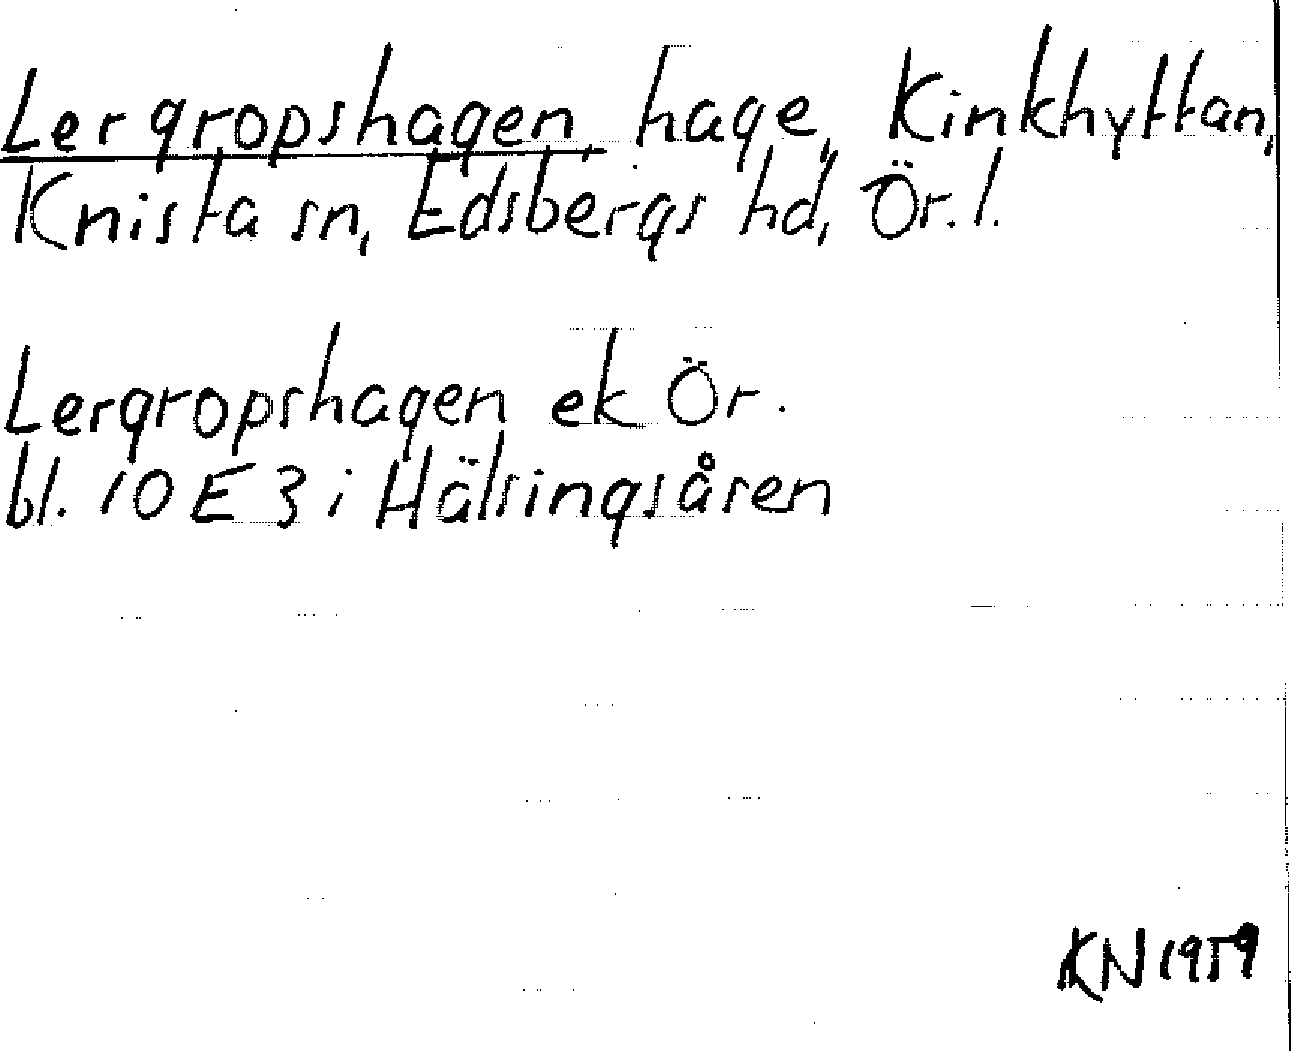 Lergropshagen, hage, Kinkhyttan,
Knista sn, Edsbergs hd, Ör. l.
Lergropshagen ek Ör.
bl. 10 E 3 i Hälsingsåsen
KN 1959